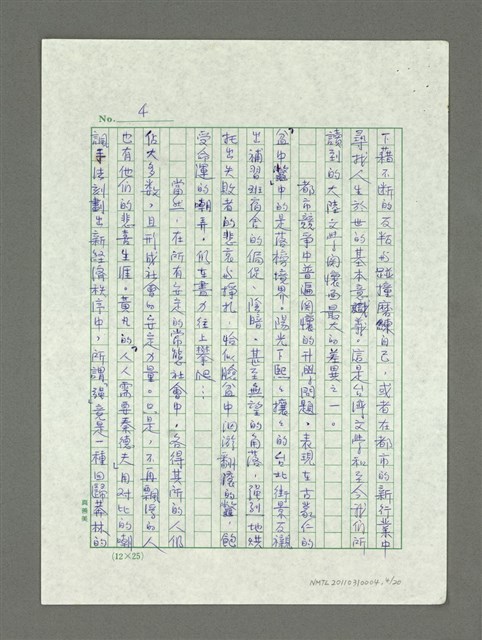 No. 4
下藉不斷的反抗或碰撞磨練自己，或者在都市的新行業中
尋找人生於世的基本意義，這是台灣文學和至今我們所
讀到的大陸文學關懷面最大的差異之一。
都市競爭中普遍困擾的升學問題，表現在古蒙仁的
盆中鱉中的是落榜境界。陽光下熙熙攘攘的台北街景反襯
出補習班宿舍的侷促、陰暗、甚至無望的角落，強烈地烘
托出失敗者的悲哀與掙扎，恰似臉盆中泅游翻滾的鱉，飽
受命運的嘲弄，仍在盡力往上攀爬…
當然，在所有安定的常態社會中，各得其所的人仍
佔大多數，且形成社會的安定力量。只是，不再飄零的人
也有他們的悲喜生涯。黃凡的人人需要秦德夫用對比的嘲
諷手法刻劃出新經濟秩序中，所謂強竟是一種回歸叢林的
(12×25)
NMTL 20110310004, 4/20